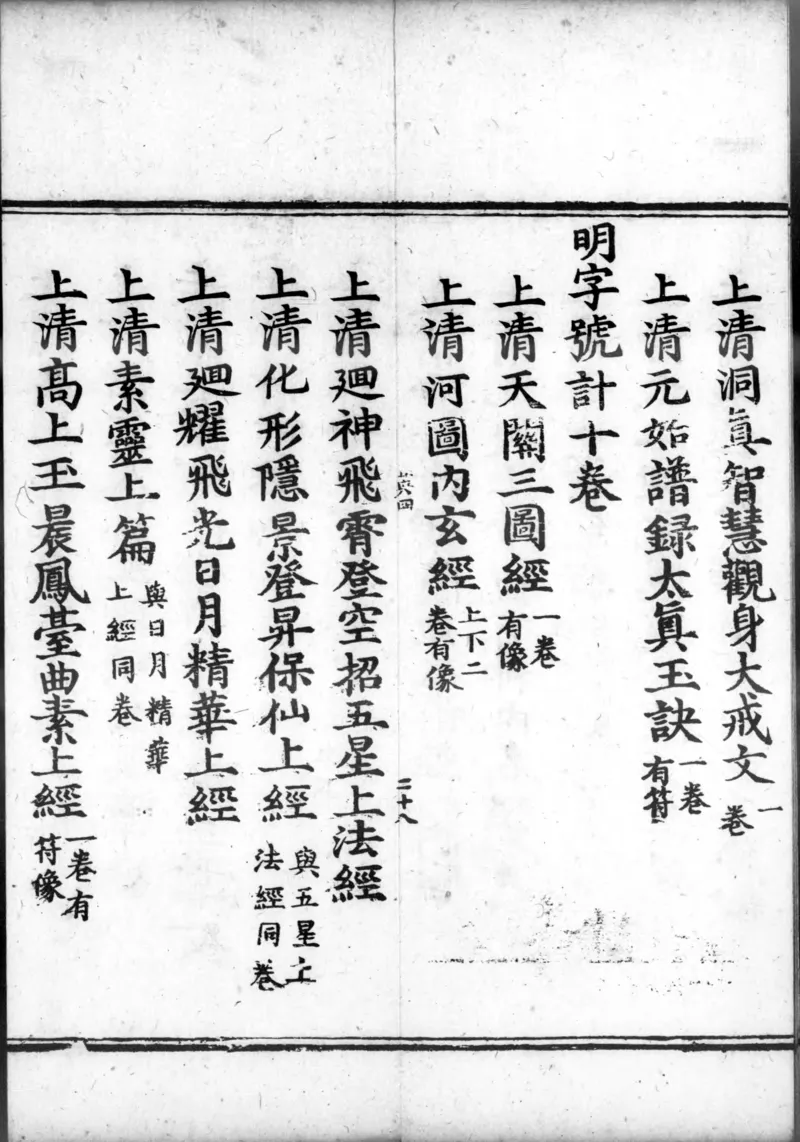 上清洞眞智慧觀身大戒文一卷
上清元始譜録太眞玉訣一卷有符
明字號計十卷
上清天關三圖經一卷有像
上清河圖内玄經上下二卷有像
英四
二十八
上清廻神飛霄登空招五星上法經
上清化形隱景登昇保仙上經與五星上法經同卷
上清廻耀飛光日月精華上經
上清素靈上篇與日月精華上經同卷
上清髙上玉晨鳳臺曲素上經一卷有符像